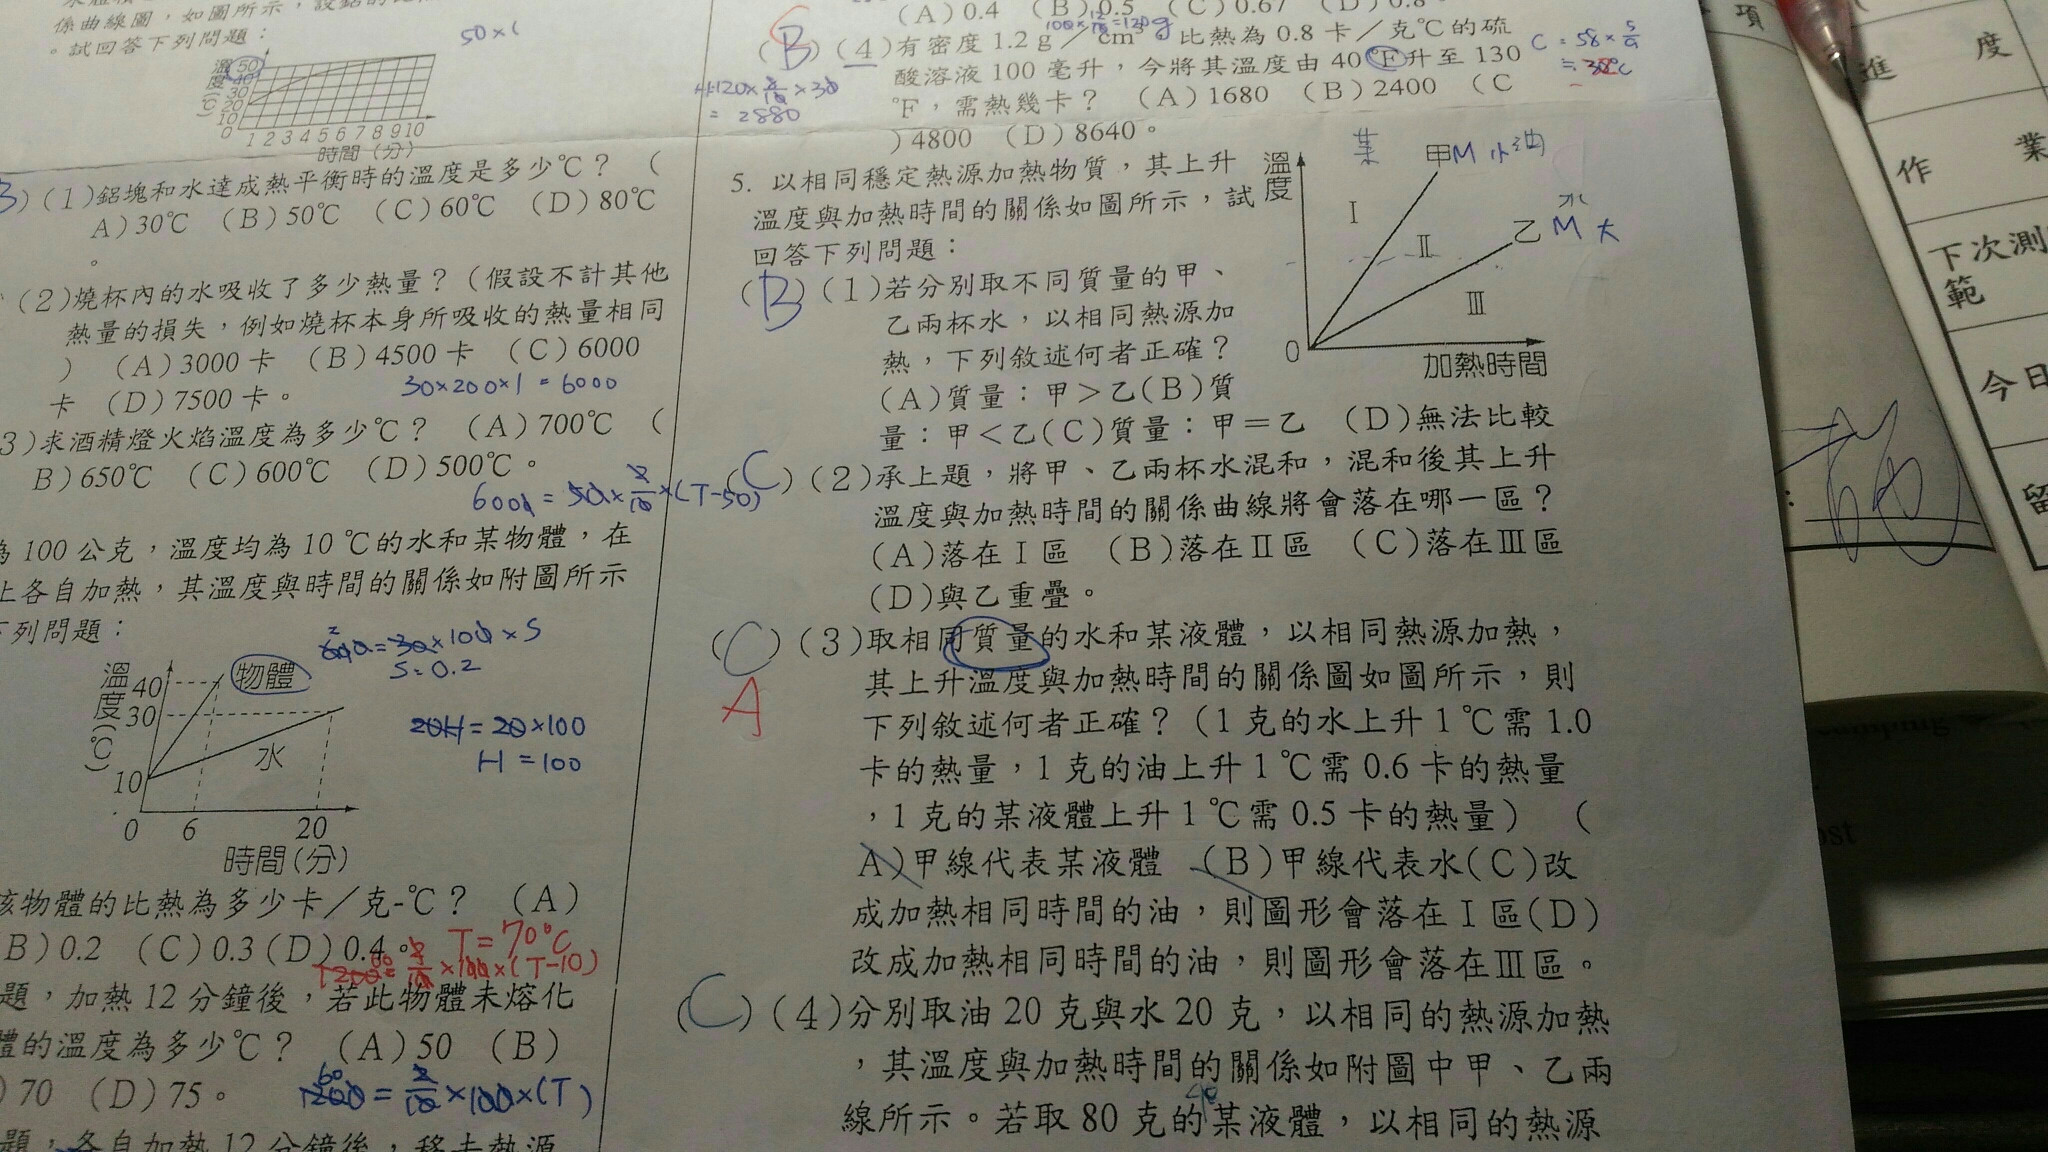 係曲線圖，如圖所示，設鋁的比熱
。試回答下列問題：
50×1
溫度(℃)
50
40
30
20
10
0
1 2 3 4 5 6 7 8 9 10
時間（分）
(1)鋁塊和水達成熱平衡時的溫度是多少℃？（
A)30℃ (B)50℃ (C)60℃ (D)80℃
。
(2)燒杯內的水吸收了多少熱量？（假設不計其他
熱量的損失，例如燒杯本身所吸收的熱量相同
） (A)3000卡 (B)4500卡 (C)6000
卡 (D)7500卡。
30×200×1=6000
3)求酒精燈火焰溫度為多少℃？ (A)700℃ (
B)650℃ (C)600℃ (D)500℃。
為100公克，溫度均為10℃的水和某物體，在
上各自加熱，其溫度與時間的關係如附圖所示
下列問題：
溫度(℃)
40
30
10
0 6 20
物體
水
時間(分)
S=0.2
20H=20×100
H=100
該物體的比熱為多少卡／克-℃？ (A)
B)0.2 (C)0.3(D)0.4。
T=70℃
題，加熱12分鐘後，若此物體未熔化
體的溫度為多少℃？ (A)50 (B)
)70 (D)75。
題，各自加熱12分鐘後，移去熱源
(A)0.4 (B)0.5 (C)0.67 (D)0.8
(B)(4)有密度1.2 g／cm³，比熱為0.8卡／克℃的硫
酸溶液100毫升，今將其溫度由40℉升至130
℉，需熱幾卡？ (A)1680 (B)2400 (C
)4800 (D)8640。
= 2880
5. 以相同穩定熱源加熱物質，其上升
溫度與加熱時間的關係如圖所示，試
回答下列問題：
溫度
某
甲M小油
水
乙M大
Ⅰ
Ⅱ
Ⅲ
0
加熱時間
(B)(1)若分別取不同質量的甲、
乙兩杯水，以相同熱源加
熱，下列敘述何者正確？
(A)質量：甲＞乙(B)質
量：甲＜乙(C)質量：甲＝乙 (D)無法比較
(C)(2)承上題，將甲、乙兩杯水混和，混和後其上升
溫度與加熱時間的關係曲線將會落在哪一區？
(A)落在Ⅰ區 (B)落在Ⅱ區 (C)落在Ⅲ區
(D)與乙重疊。
(C)(3)取相同質量的水和某液體，以相同熱源加熱，
A
其上升溫度與加熱時間的關係圖如圖所示，則
下列敘述何者正確？（1克的水上升1℃需1.0
卡的熱量，1克的油上升1℃需0.6卡的熱量
，1克的某液體上升1℃需0.5卡的熱量） (
A)甲線代表某液體 (B)甲線代表水(C)改
成加熱相同時間的油，則圖形會落在Ⅰ區(D)
改成加熱相同時間的油，則圖形會落在Ⅲ區。
(C)(4)分別取油20克與水20克，以相同的熱源加熱
，其溫度與加熱時間的關係如附圖中甲、乙兩
線所示。若取80克的某液體，以相同的熱源
項
進度
作業
下次測
範
今日
留